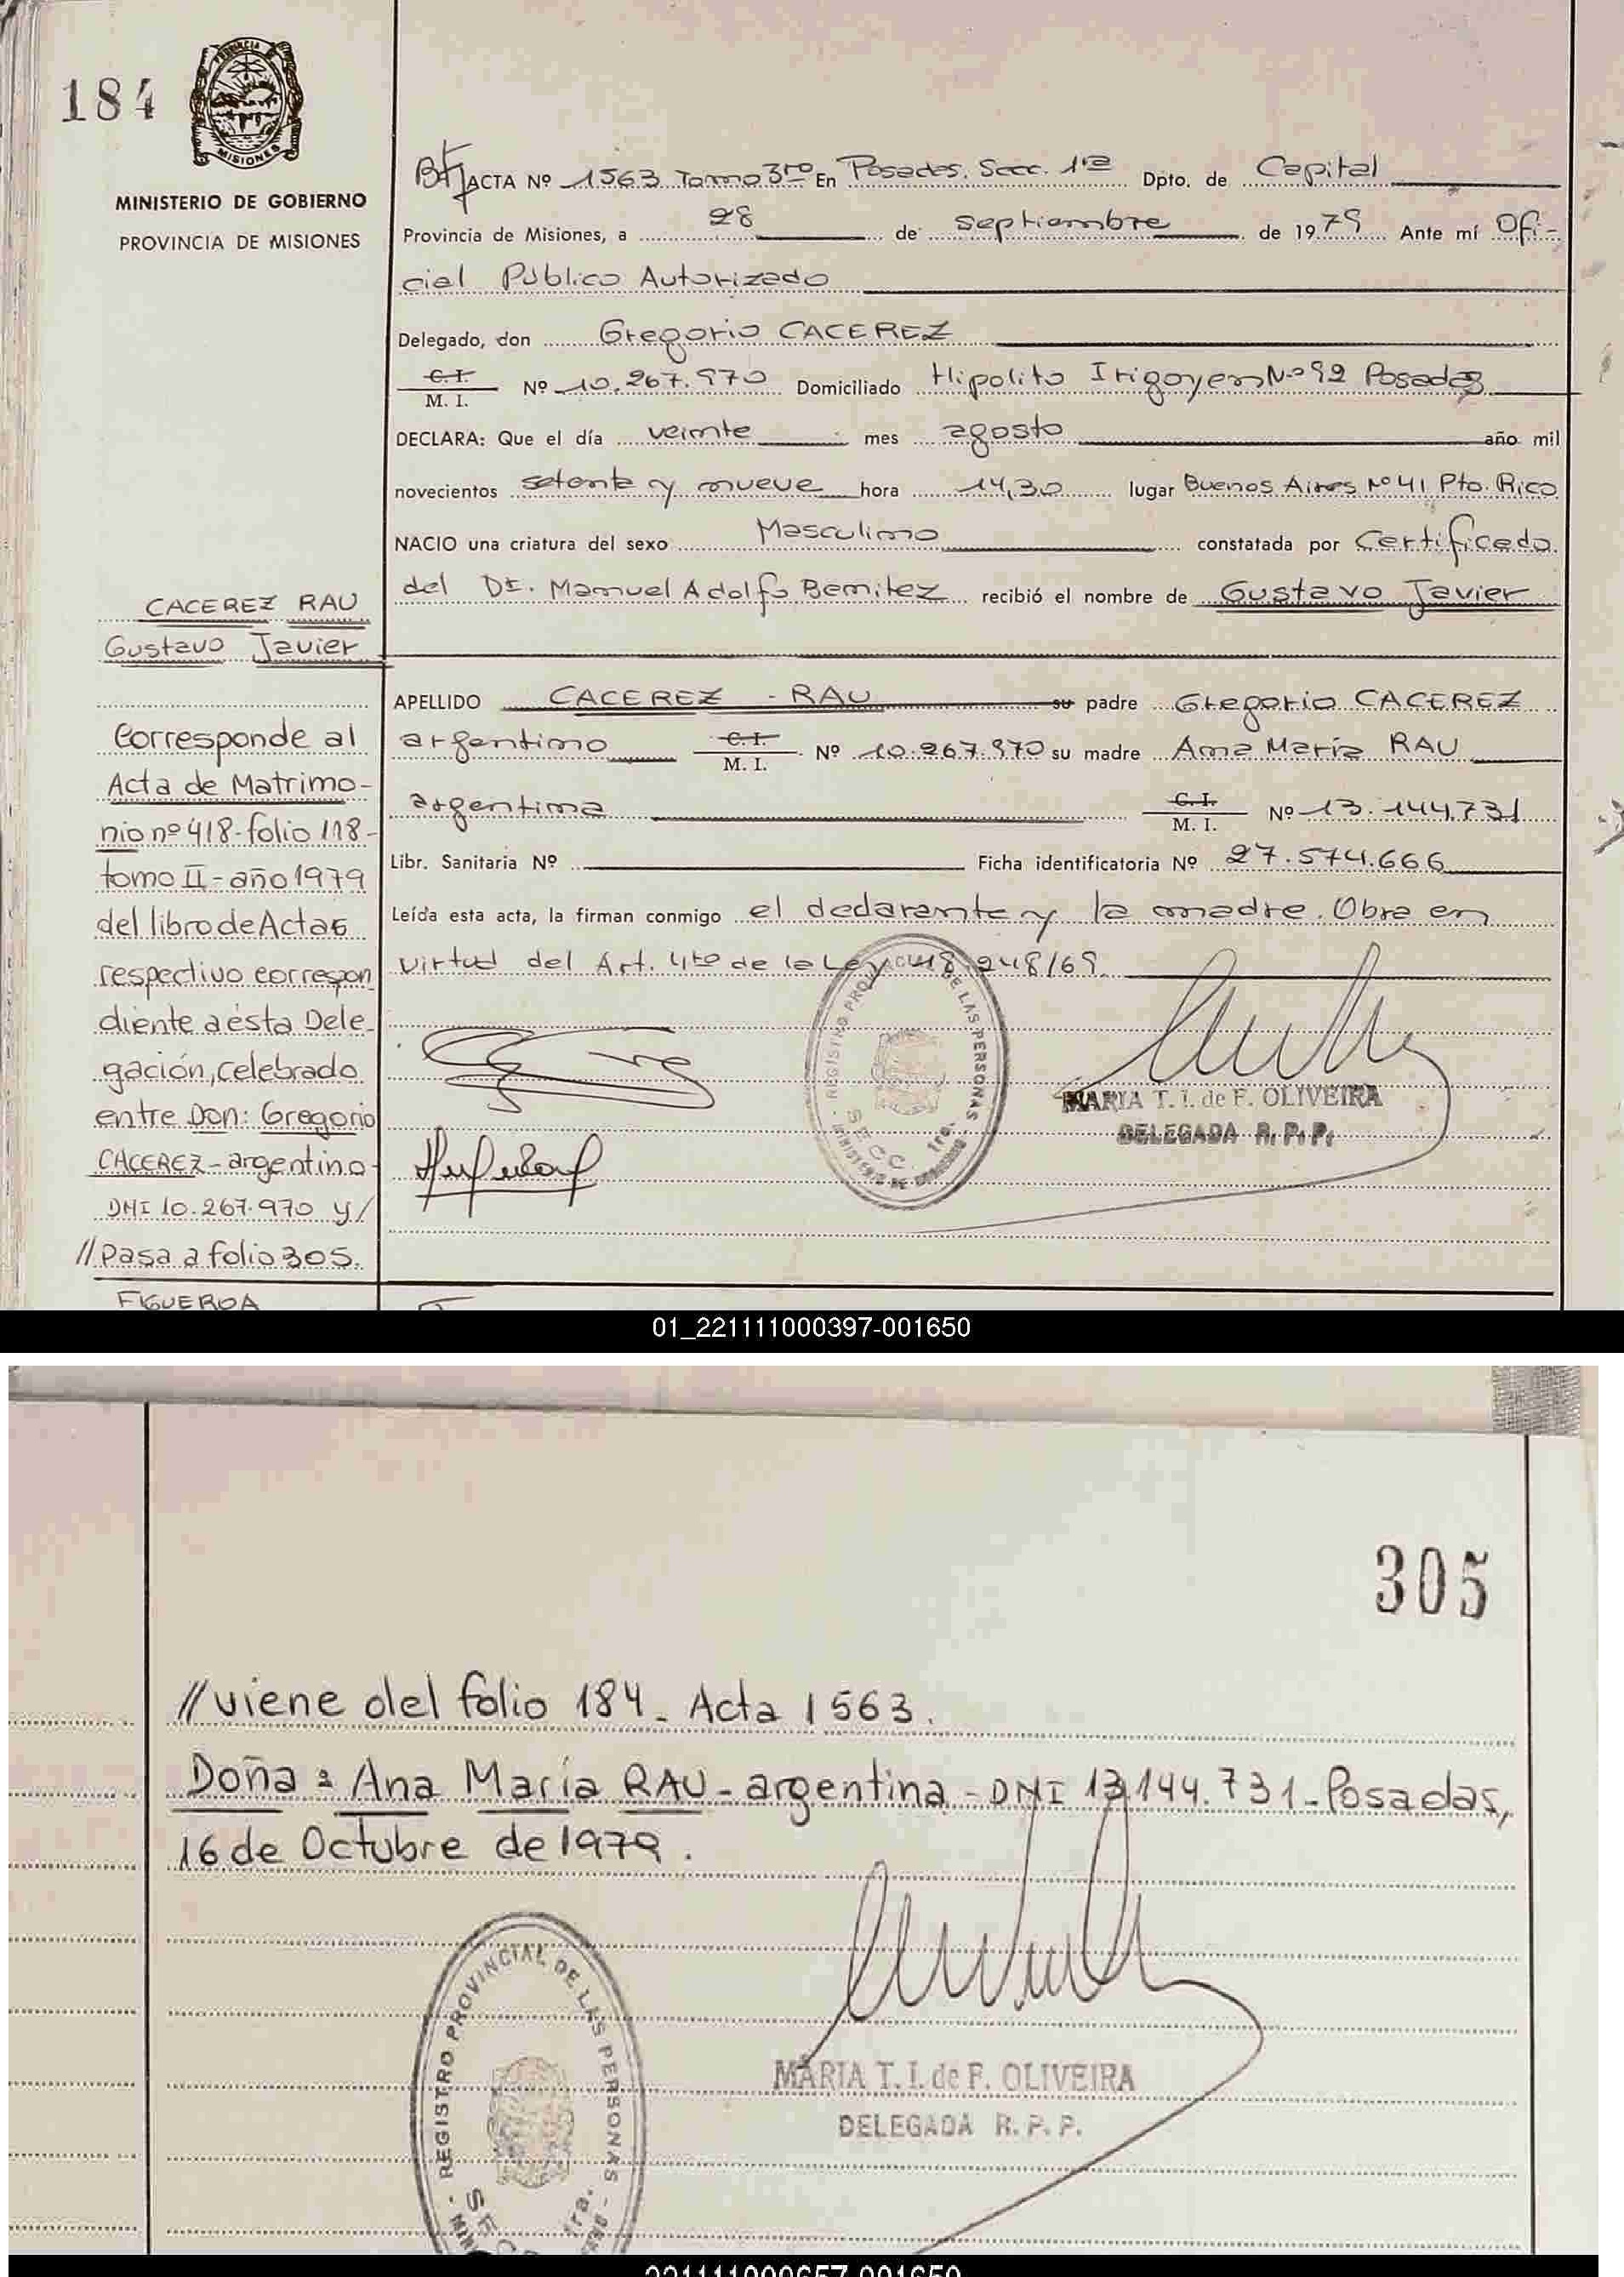 184
PROVINCIA DE
MISIONES
MINISTERIO DE GOBIERNO
PROVINCIA DE MISIONES
ACTA Nº 1563 Tomo 3ro En Posadas. Secc. 1ra Dpto. de Capital
Provincia de Misiones, a 28 de septiembre de 1979 Ante mí Ofi-
cial Público Autorizado
Delegado, don Gregorio CACEREZ
C.I.
M. I. Nº 10.267.970 Domiciliado Hipolito Irigoyen Nº 92 Posadas
DECLARA: Que el día veinte mes agosto año mil
novecientos setenta y nueve hora 14,30 lugar Buenos Aires Nº 41 Pto. Rico
NACIO una criatura del sexo Masculino constatada por Certificado
del Dr. Manuel Adolfo Benitez recibió el nombre de Gustavo Javier
CACEREZ RAU
Gustavo Javier
APELLIDO CACEREZ - RAU su padre Gregorio CACEREZ
argentino C.I. M. I. Nº 10.267.970 su madre Ana María RAU
argentina C.I. M. I. Nº 13.144.731
Libr. Sanitaria Nº Ficha identificatoria Nº 27.574.666
Leída esta acta, la firman conmigo el declarante y la madre. Obra en
virtud del Art. 4to de la Ley 18.248/69.
Corresponde al
Acta de Matrimo-
nio nº 418-folio 118-
tomo II-año 1979
del libro de Actas
respectivo correspon
diente a ésta Dele-
gación, celebrado
entre Don: Gregorio
CACEREZ-argentino-
DNI 10.267.970 y/
//Pasa a folio 305.
FIGUEROA
REGISTRO PROVINCIAL DE LAS PERSONAS
SECC. 1ra.
MARIA T. I. de F. OLIVEIRA
DELEGADA R. P. P.
01_221111000397-001650
305
//viene del folio 184. Acta 1563.
Doña: Ana María RAU-argentina-DNI 13.144.731-Posadas,
16 de Octubre de 1979.
REGISTRO PROVINCIAL DE LAS PERSONAS
MARIA T. I. de F. OLIVEIRA
DELEGADA R. P. P.
221111000657-001650